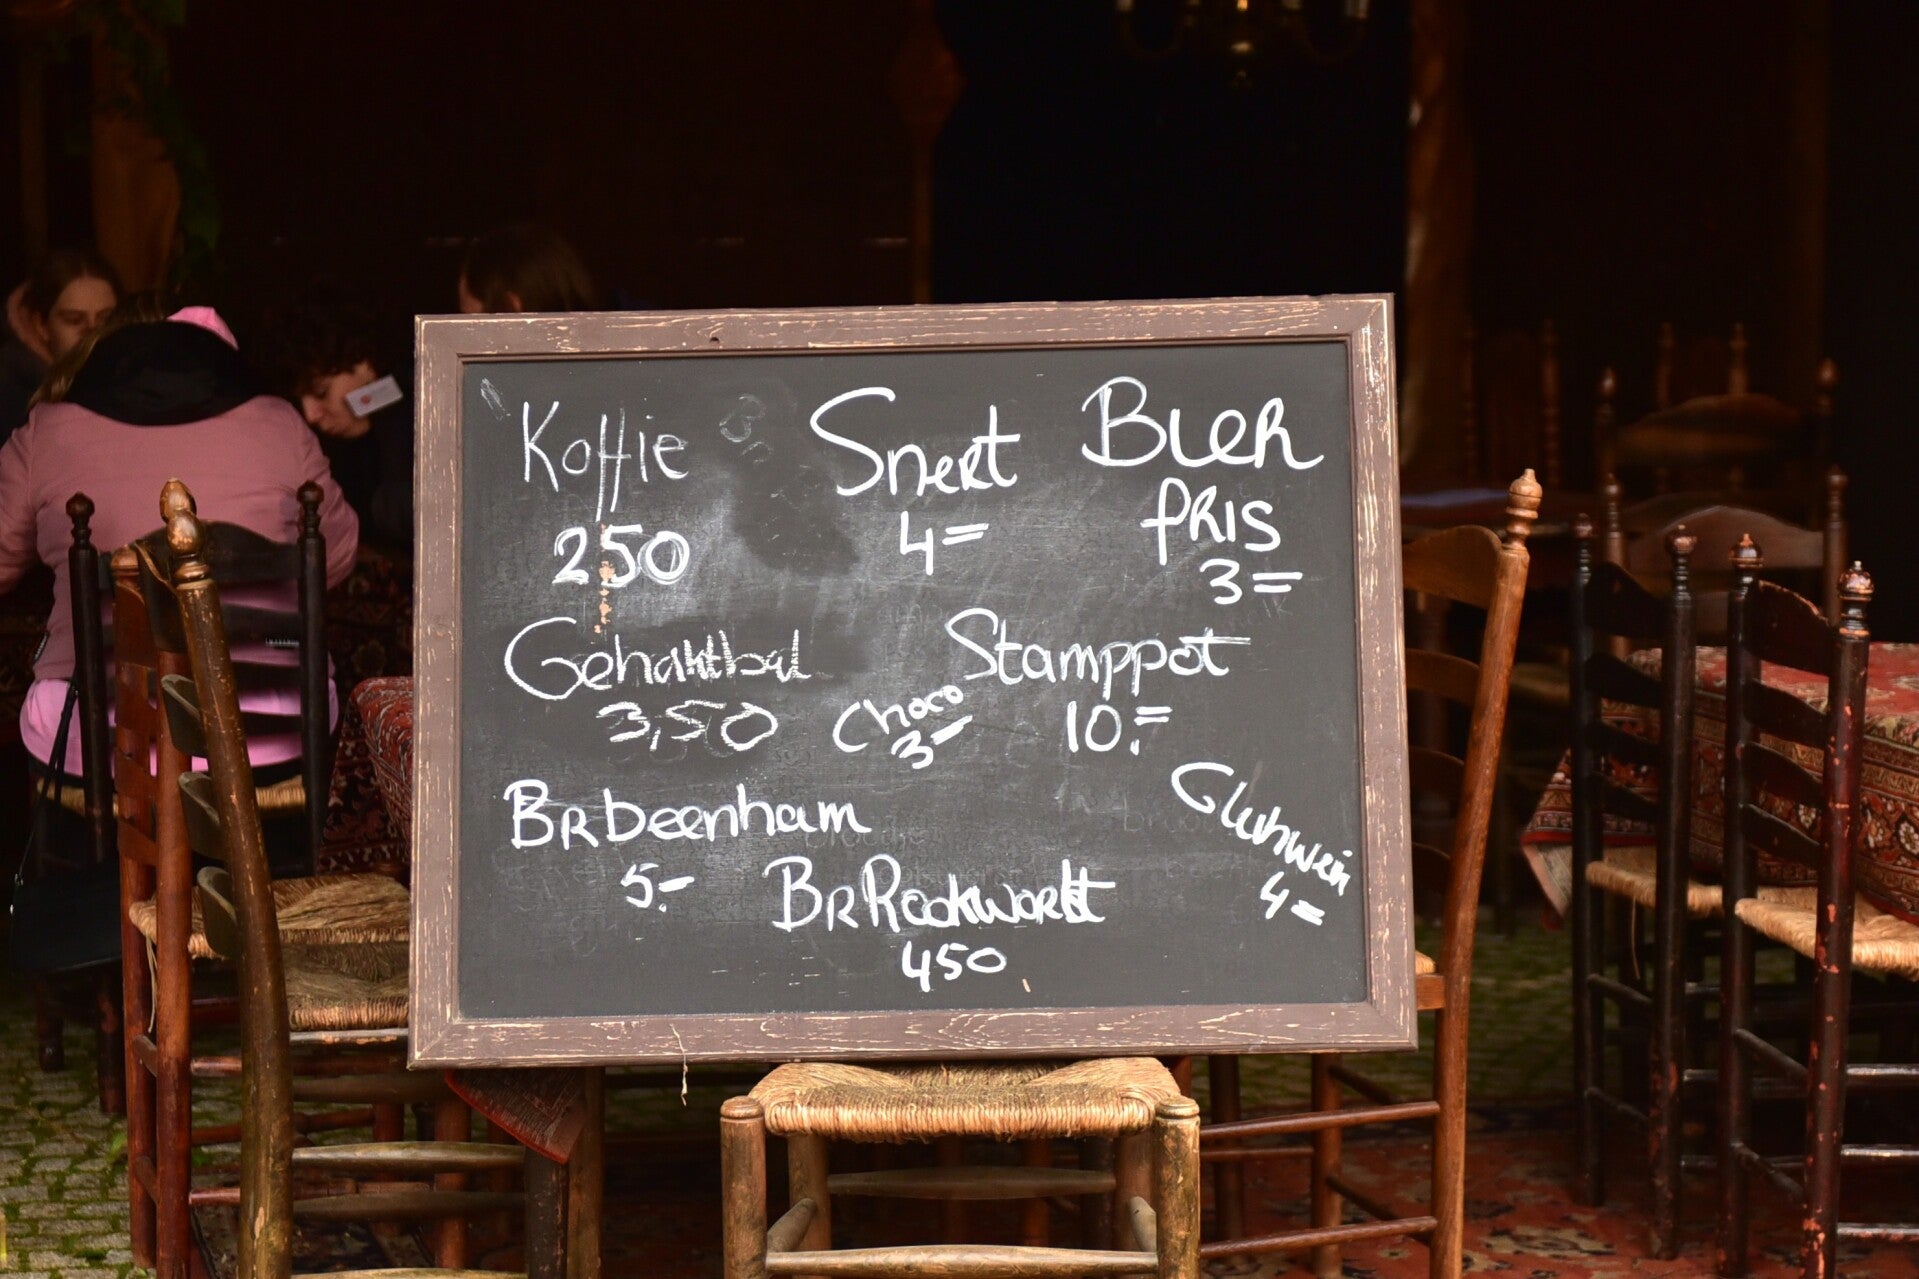 Koffie
250
Snert
4=
Bier
fris
3=
Gehaktbal
3,50
Choco
3-
Stamppot
10.=
Br beenham
5.-
Br Rookworst
450
Gluhwein
4=